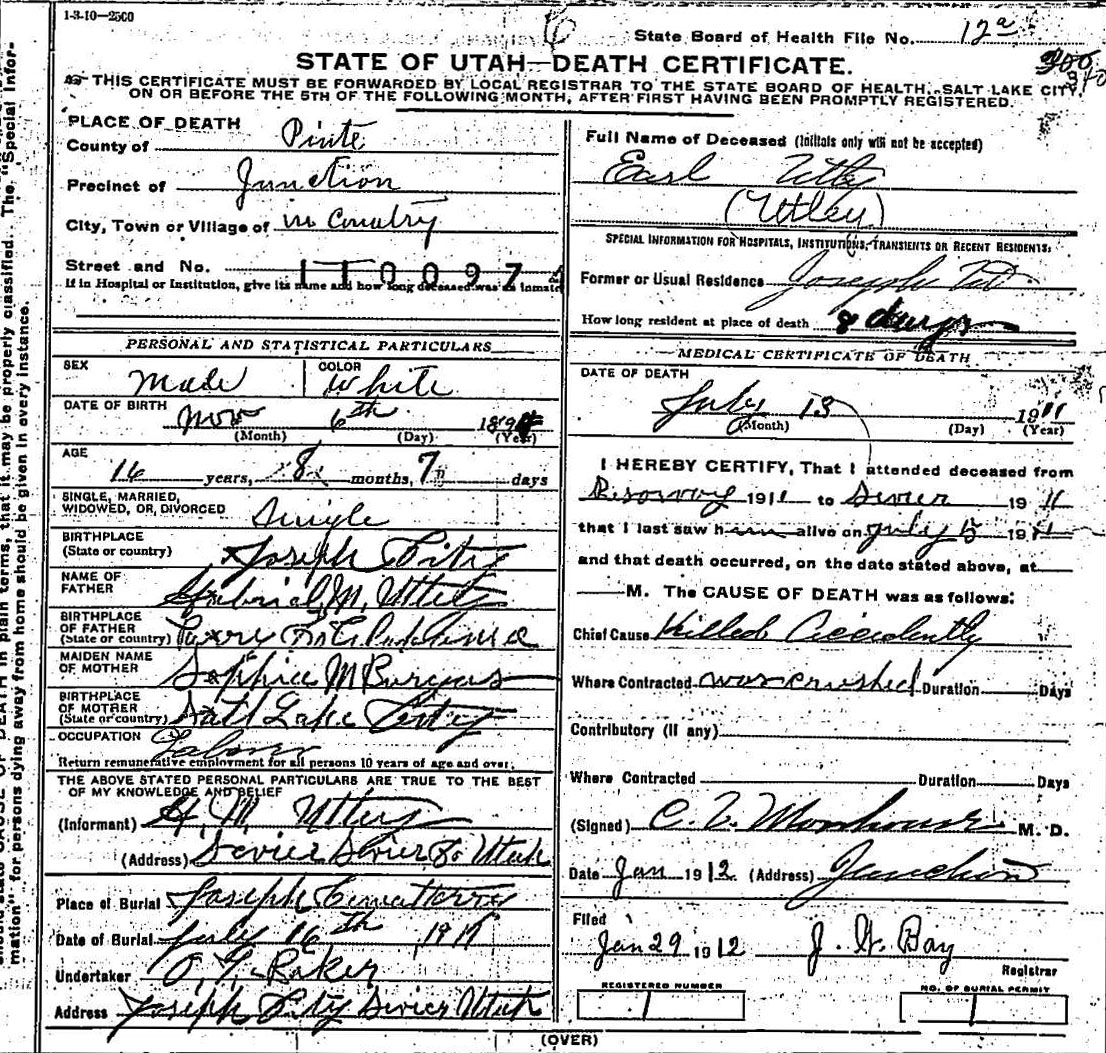 1-3-10—2500
State Board of Health File No. 12a
STATE OF UTAH—DEATH CERTIFICATE.
340
THIS CERTIFICATE MUST BE FORWARDED BY LOCAL REGISTRAR TO THE STATE BOARD OF HEALTH, SALT LAKE CITY,
ON OR BEFORE THE 5TH OF THE FOLLOWING MONTH, AFTER FIRST HAVING BEEN PROMPTLY REGISTERED.
PLACE OF DEATH
County of Piute
Precinct of Junction
City, Town or Village of in Country
Street and No.
1100974
If in Hospital or Institution, give its name and how long deceased was an inmate
PERSONAL AND STATISTICAL PARTICULARS
SEX Male COLOR White
DATE OF BIRTH Nov 6th 1894
(Month) (Day) (Year)
AGE
16 years, 8 months, 7 days
SINGLE, MARRIED,
WIDOWED, OR, DIVORCED Single
BIRTHPLACE
(State or country) Joseph City
NAME OF
FATHER Gabriel M. Utley
BIRTHPLACE
OF FATHER
(State or country)
MAIDEN NAME
OF MOTHER Sophia M Burgess
BIRTHPLACE
OF MOTHER
(State or country) Salt Lake City
OCCUPATION Labor
Return remunerative employment for all persons 10 years of age and over.
THE ABOVE STATED PERSONAL PARTICULARS ARE TRUE TO THE BEST
OF MY KNOWLEDGE AND BELIEF
(Informant) M. Utley
(Address) Sevier Sevier Co Utah
Place of Burial Joseph
Date of Burial July 16th 1911
Undertaker Baker
Address Joseph City Sevier Utah
Full Name of Deceased (Initials only will not be accepted)
Earl
(Utley)
SPECIAL INFORMATION FOR HOSPITALS, INSTITUTIONS, TRANSIENTS OR RECENT RESIDENTS:
Former or Usual Residence Joseph
How long resident at place of death 8 days
MEDICAL CERTIFICATE OF DEATH
DATE OF DEATH
July 13 1911
(Month) (Day) (Year)
I HEREBY CERTIFY, That I attended deceased from
1911 to Sevier 1911
that I last saw him alive on July 5 1911
and that death occurred, on the date stated above, at
M. The CAUSE OF DEATH was as follows:
Chief Cause Killed Accidently
Where Contracted was crushed Duration Days
Contributory (if any)
Where Contracted Duration Days
(Signed) M. D.
Date Jan 1912 (Address) Junction
Filed
Jan 29 1912 J. W. Bay
Registrar
REGISTERED NUMBER
1
NO. OF BURIAL PERMIT
1
(OVER)
mation" for persons dying away from home should be given in every instance.
should state CAUSE OF DEATH in plain terms, that it may be properly classified. The "Special Infor-